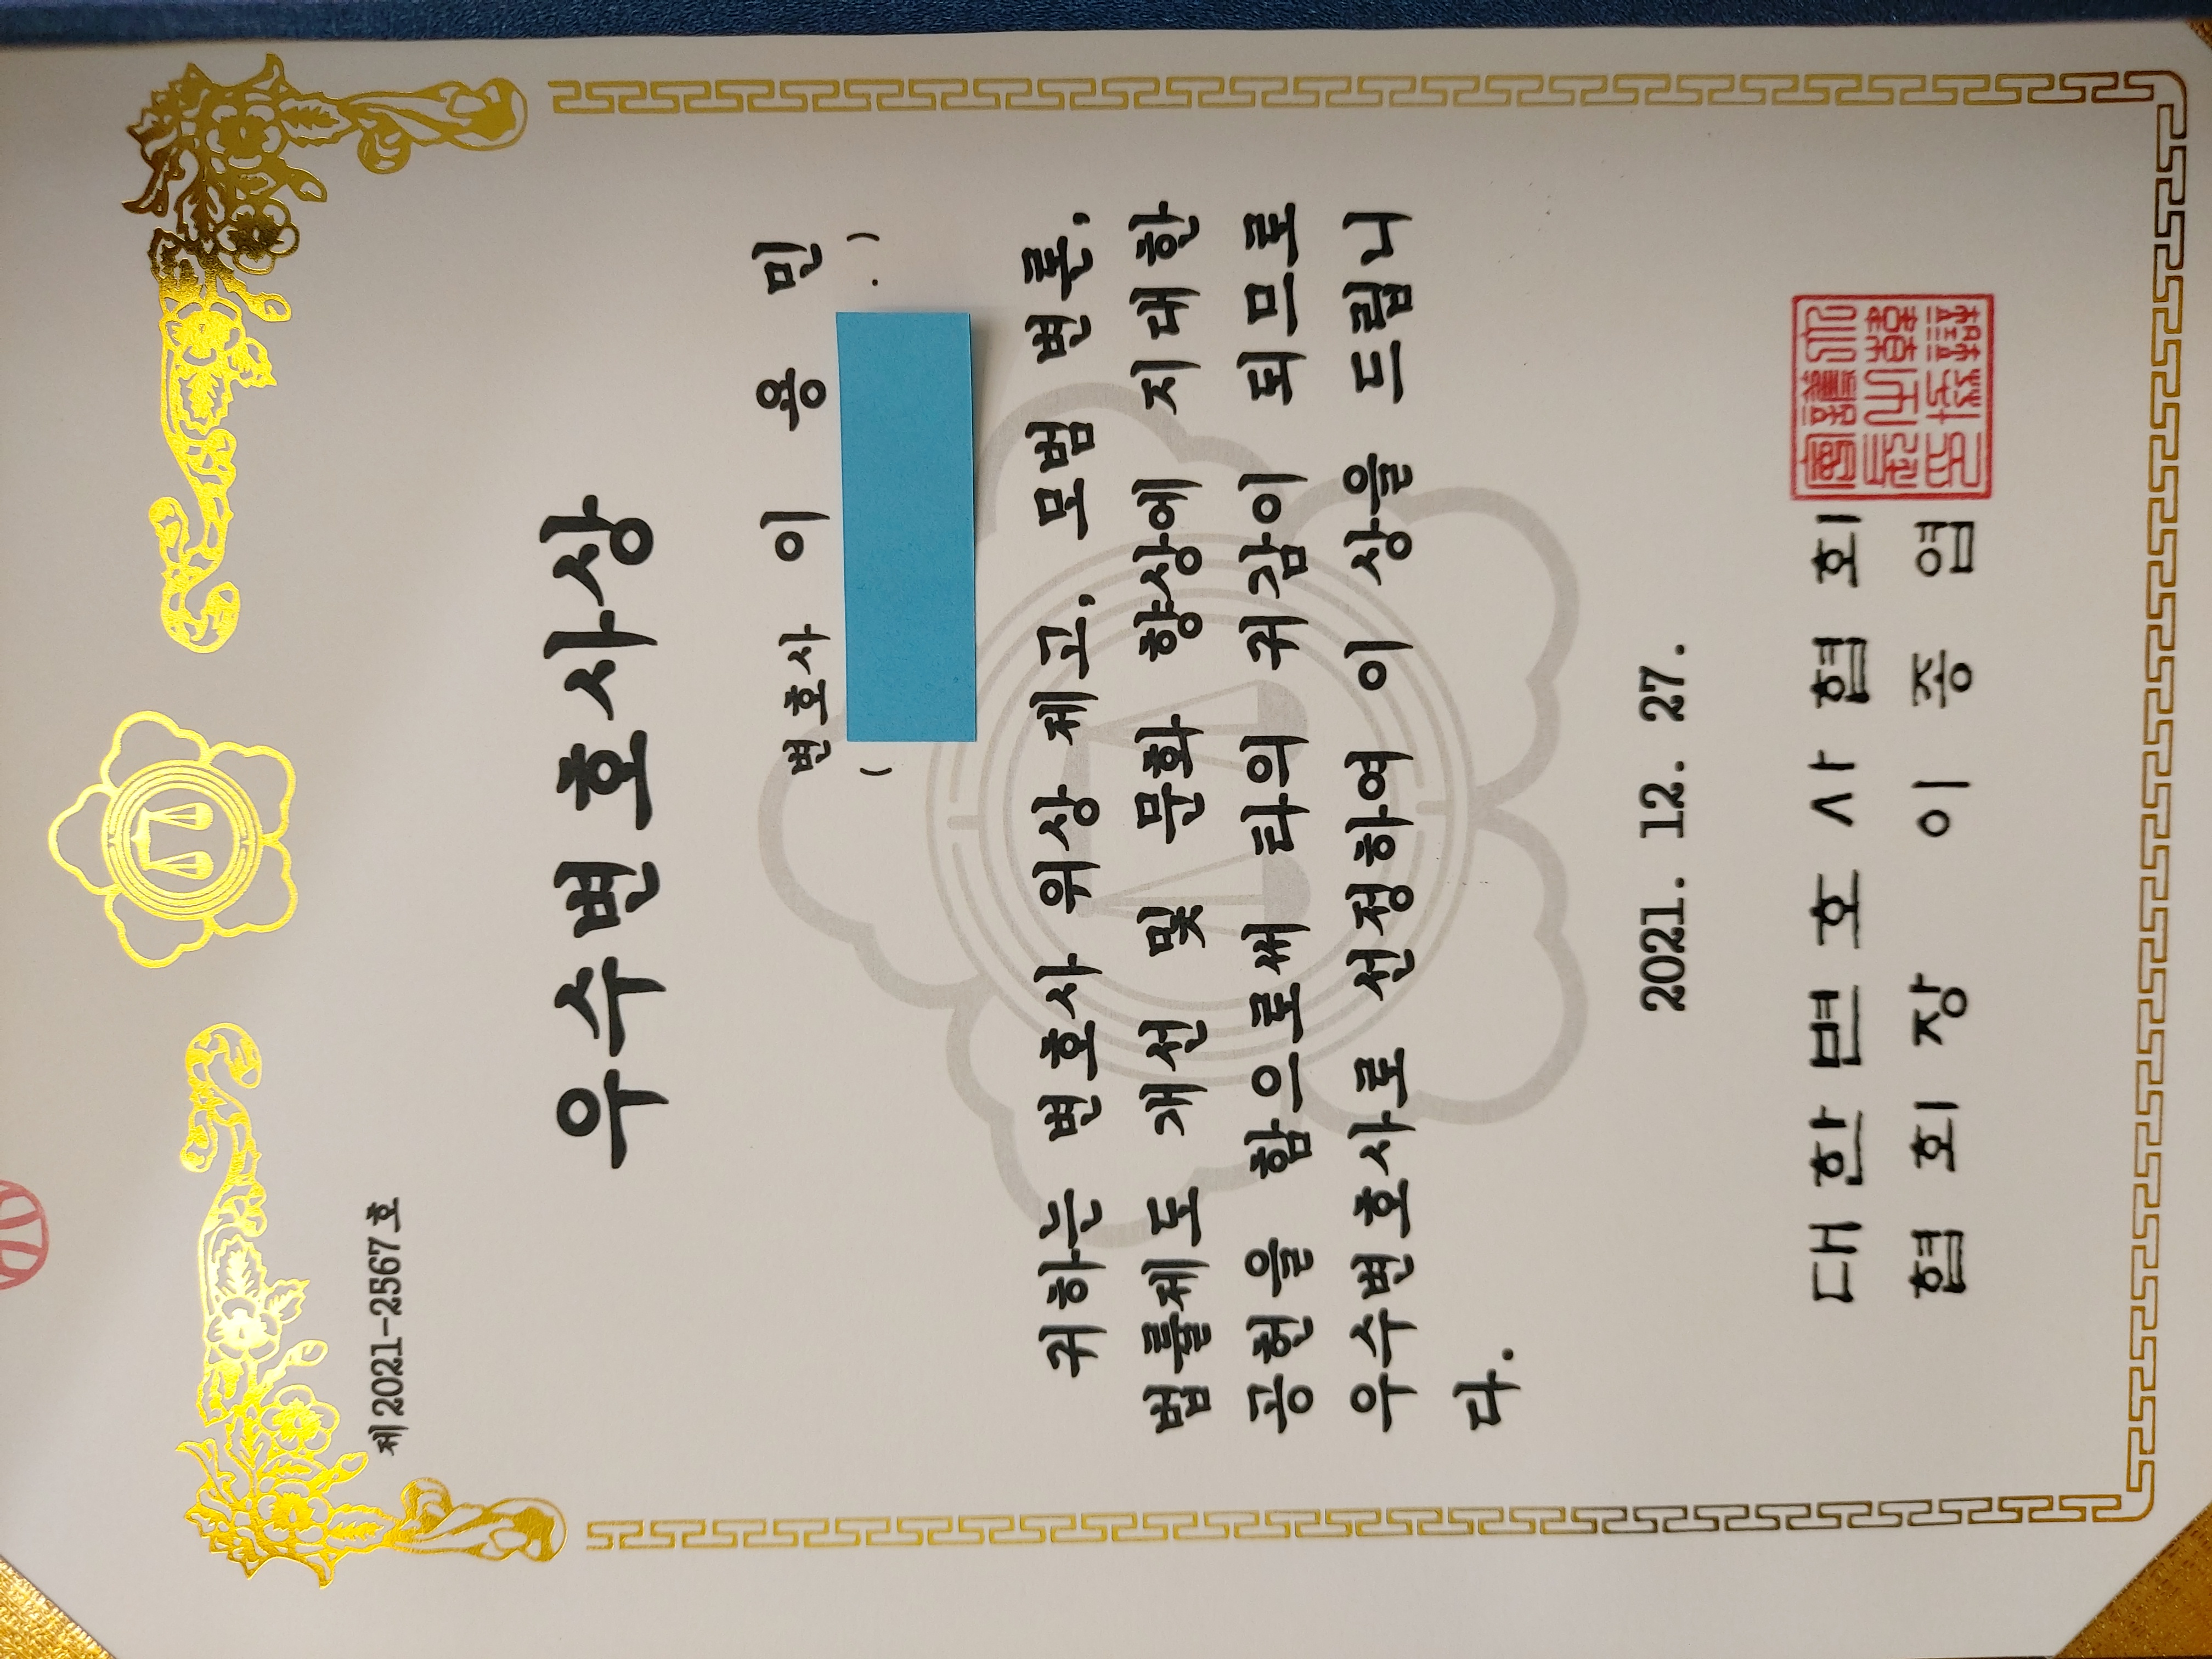 제2021-2567호
우수변호사상
변호사 이 용 민
( . )
귀하는 변호사 위상 제고, 모범 변론,
법률제도 개선 및 문화 향상에 지대한
공헌을 함으로써 타의 귀감이 되므로
우수변호사로 선정하여 이 상을 드립니
다.
2021. 12. 27.
대한변호사협회
협회장 이 종 엽